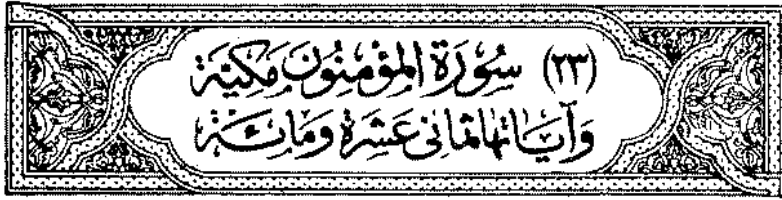 (٢٣) سُورَةِ المؤمِنُونَ مَكِيَّة
وَآيَاتهَا ثمَانى عَشِرَة وَمَائَة